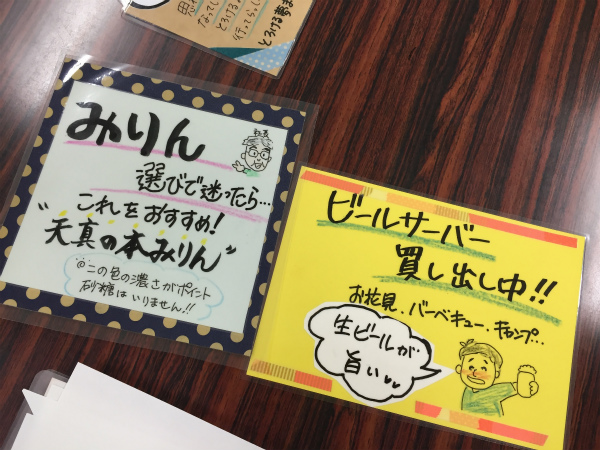 とろける夢ま
行ってらっし
なってし
みりん
選びで迷ったら…
これをおすすめ!
"天真の本みりん"
この色の濃さがポイント
砂糖はいりません!!
ビールサーバー
買し出し中!!
お花見、バーベキュー・キャンプ…
生ビールが
旨い